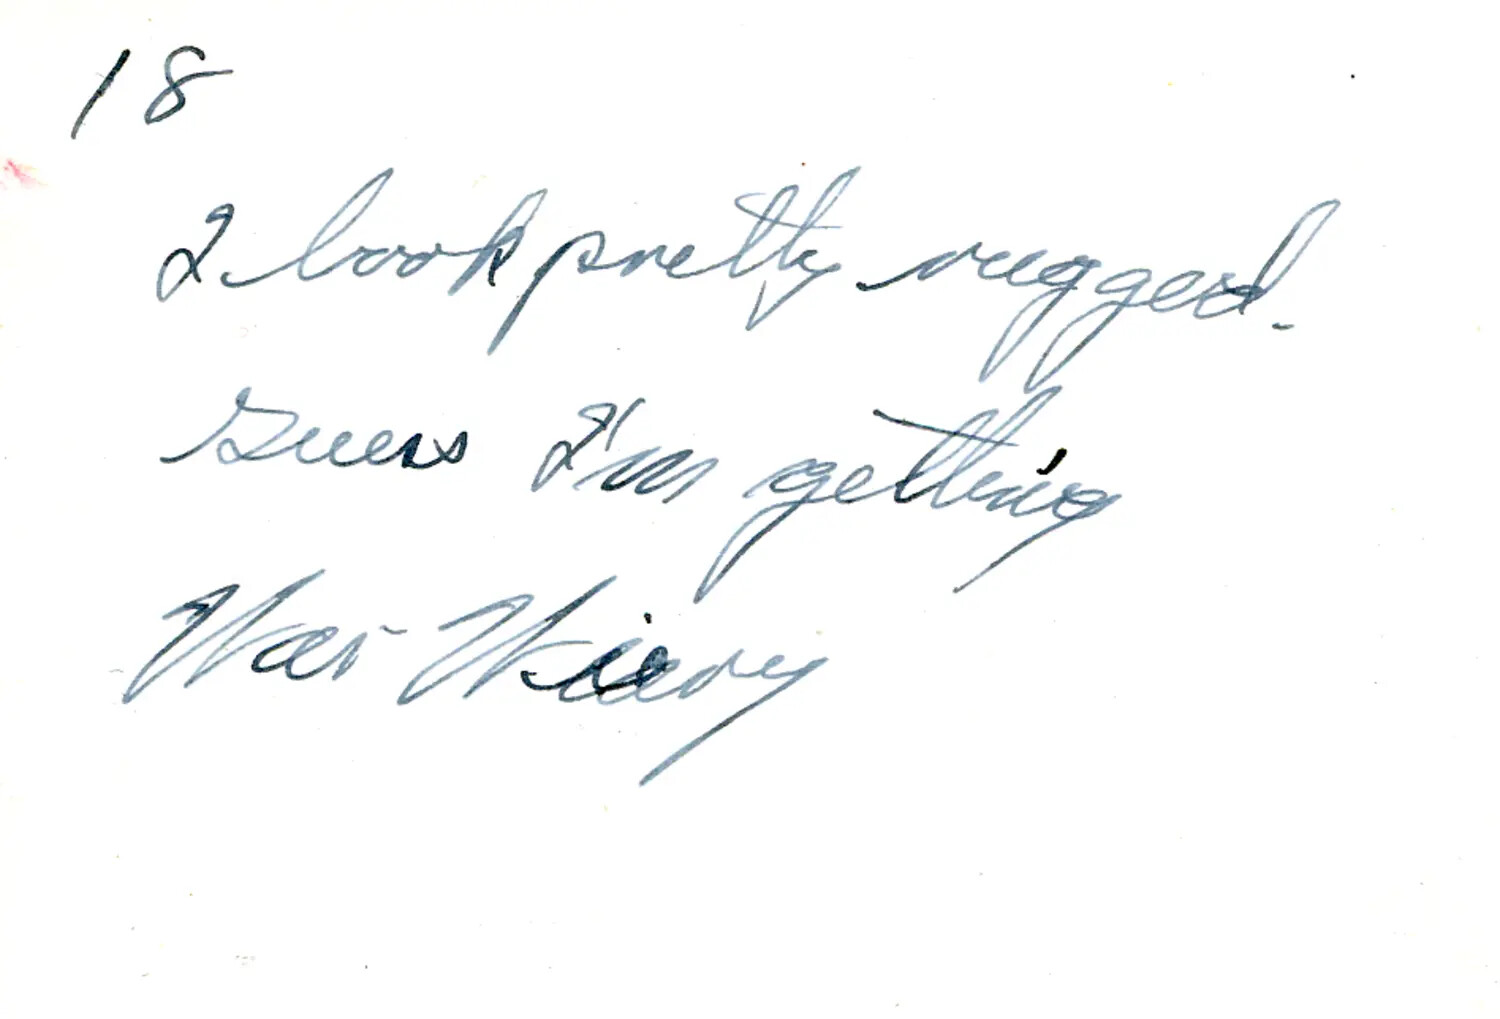 18
I look pretty rugged.
Guess I'm getting
War Weary